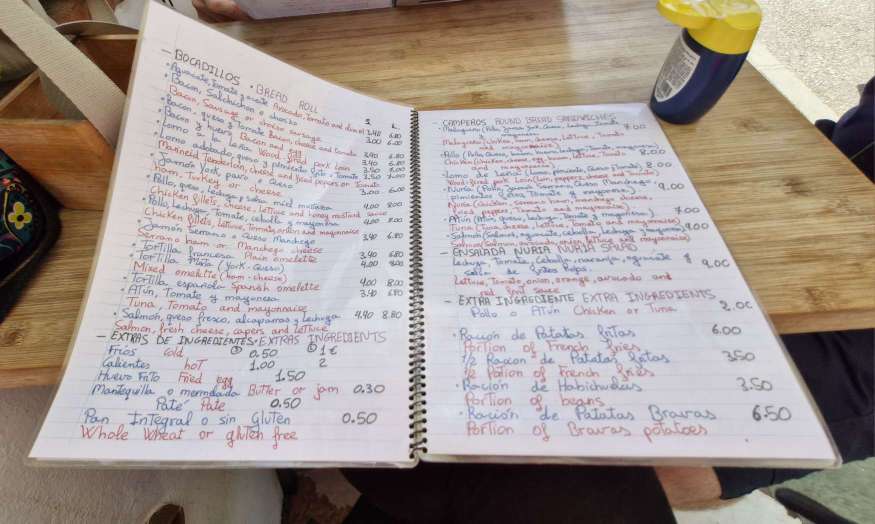 - BOCADILLOS · BREAD ROLL
S. L.
· Aguacate, Tomate y aceite Avocado, tomato and olive oil 3.40 6.80
· Bacon, Salchichon o chorizo 3.00 6.00
Bacon, Sausage or chorizo sausage
· Bacon, queso y tomate Bacon, cheese and tomato 3.40 6.80
· Bacon y huevo Bacon and egg 3.40 6.80
· Lomo a la leña Wood fired pork loin
· Lomo adobado, queso y pimiento frito o Tomate 3.50
Marineld Tenderloin, cheese and fried peppers or Tomato
· Jamón York, pavo o Queso 3.00 6.00
ham, Turkey or cheese
· Pollo, queso, Lechuga y salsa miel mostaza 4.00 8.00
Chicken fillets, cheese, lettuce and honey mustard sauce
· Pollo, Lechuga, Tomate, cebolla y mayonesa 4.00 8.00
Chicken fillets, lettuce, Tomato, onion and mayonnaise
· Jamón Serrano o Queso Manchego 3.40 6.80
Serrano ham or Manchego cheese
· Tortilla francesa Plain omelette 3.40 6.80
· Tortilla Mixta (York-Queso) 4.00 8.00
Mixed omelette (ham-cheese)
· Tortilla española Spanish omelette 4.00 8.00
· Atún, Tomate y mayonesa 3.40 6.80
Tuna, Tomato and mayonnaise
· Salmón, queso fresco, alcaparras y Lechuga 4.40 8.80
Salmon, fresh cheese, capers and lettuce
- EXTRAS DE INGREDIENTES · EXTRAS INGREDIENTS
Frios Cold 0.50 1€
Calientes hoT 1.00 2
Huevo Frito Fried egg 1.50
Mantequilla o mermelada Butter or jam 0.30
Pate Pate 0.50
Pan Integral o sin Gluten 0.50
Whole wheat or gluten free
- CAMPEROS ROUND BREAD SANDWICHES
· Malagueño (Pollo, Jamon York, Queso, Lechuga, Tomate y mayonesa) 7.00
Malagueño (chicken, ham, cheese, lettuce, Tomato and mayonnaise)
· Pollo (Pollo, Queso, bacon, huevo, lechuga, Tomate, mayonesa) 8.00
Chicken (chicken, cheese, egg, bacon, lettuce, Tomato and mayonnaise)
· Lomo de Leña (Lomo, pimiento, Queso y Tomate) 8.00
Wood-fired pork Loin (Loin, peppers, cheese and tomato)
· Nuria (Pollo, Jamon Serrano, Queso Manchego, pimientos fritos, Tomate y mayonesa) 9.00
Nuria (Chicken, Serrano ham, manchego cheese, Fried peppers, Tomato and mayonnaise)
· Atún (Atun, queso, lechuga, Tomate y mayonesa) 7.00
Tuna (Tuna, cheese, lettuce, tomato and mayonnaise)
· Salmón (Salmón, aguacate, cebolla, Lechuga y mayonesa) 9.00
Salmon (Salmon, avocado, onion, lettuce and mayonnaise)
- ENSALADA NURIA NURIA SALAD
Lechuga, Tomate, Cebolla, naranja, aguacate y salsa de frutos Rojos. 9.00
Lettuce, Tomato, onion, orange, avocado and red fruit sauce
- EXTRA INGREDIENTE EXTRA INGREDIENTS
Pollo o Atún Chicken or Tuna 2.00
· Ración de Patatas fritas 6.00
Portion of French fries
· 1/2 Racion de Patatas fritas 3.50
1/2 Potion of French fries
· Ración de Habichuelas 3.50
Portion of beans
· Ración de Patatas Bravas 6.50
Portion of Bravas potatoes